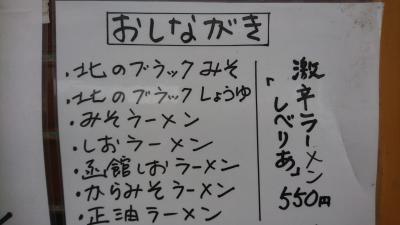 おしながき
・北のブラックみそ
・北のブラックしょうゆ
・みそラーメン
・しおラーメン
・函館しおラーメン
・からみそラーメン
・正油ラーメン
激辛ラーメン
「しべりあ」
550円